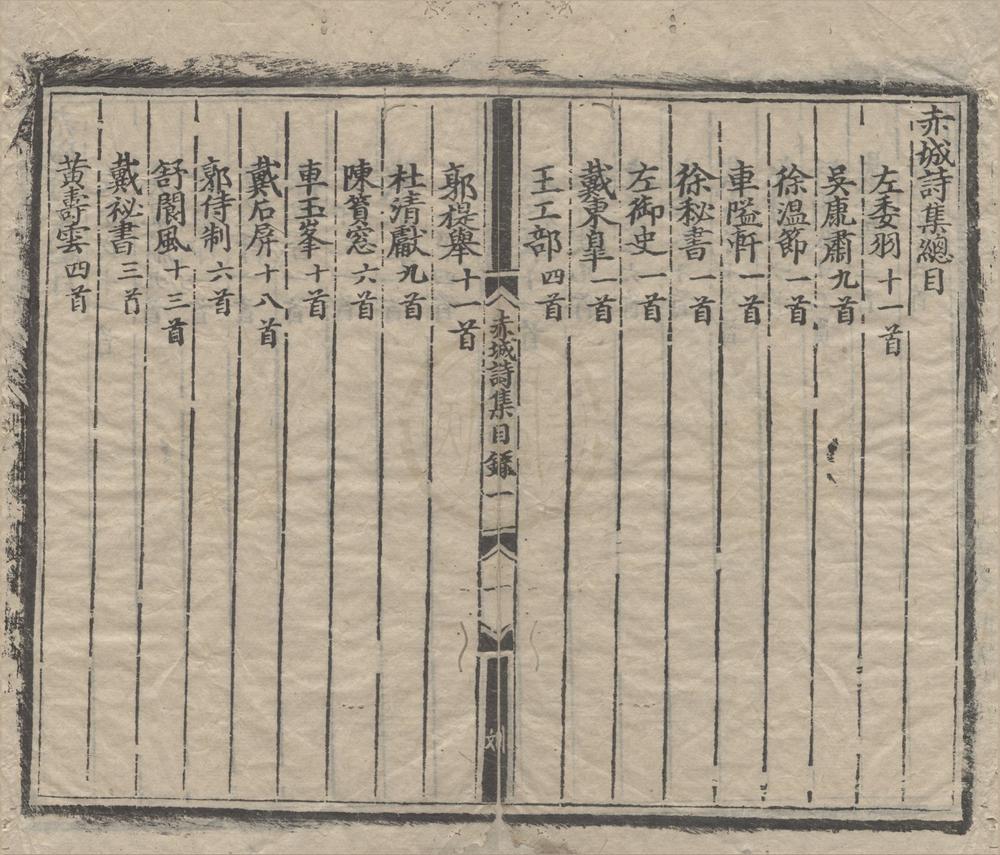 赤城詩集總目
左委羽十一首
吳康肅九首
徐溫節一首
車隘軒一首
徐秘書一首
左御史一首
戴東皐一首
王工部四首
赤城詩集目錄一
一
刘
郭槼舉十一首
杜清獻九首
陳篔窓六首
車玉峯十首
戴石屏十八首
郭侍制六首
舒閬風十三首
戴祕書三首
黃壽雲四首